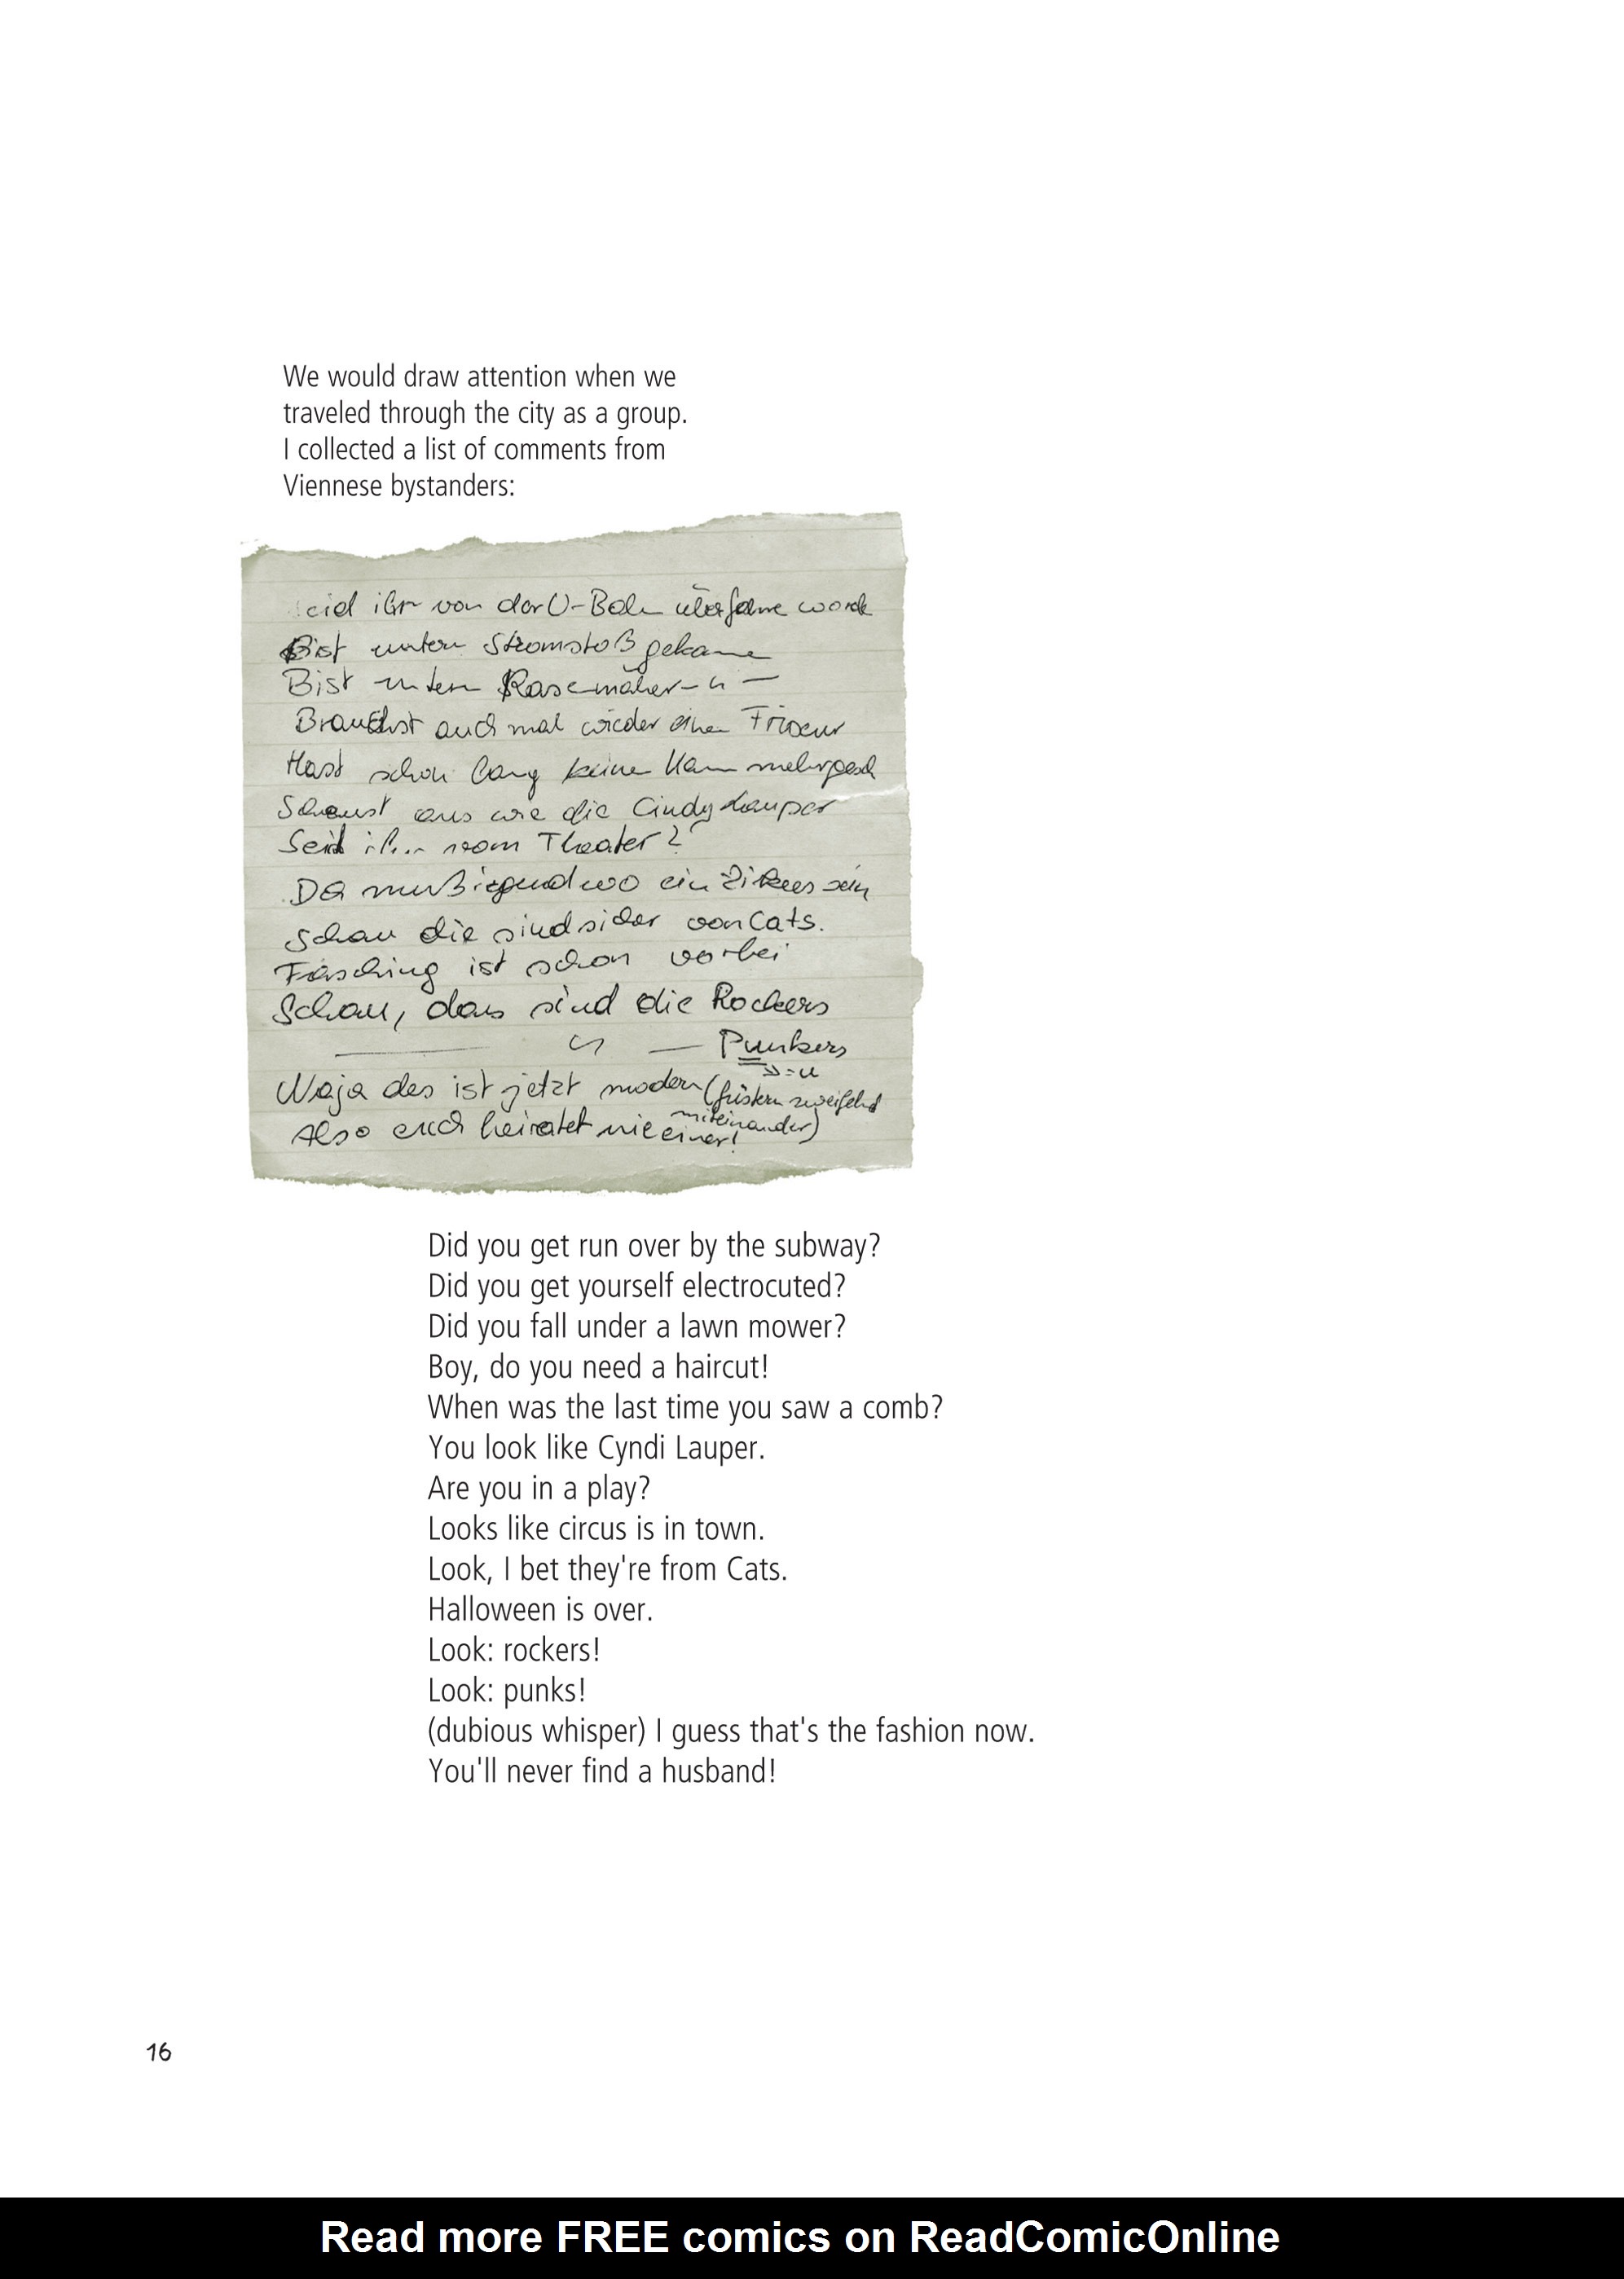 We would draw attention when we
traveled through the city as a group.
I collected a list of comments from
Viennese bystanders:
seid ihr von der U-Bahn überfahre worde
Bist untern Stromstoß gekomme
Bist untern Rasenmäher - " -
Brauchst auch mal wieder einen Friseur
Hast schon lang keinen Kamm mehr gesch
Schaust aus wie die Cindy Lauper
Seid ihr vom Theater?
Da muß irgendwo ein Zirkus sein
Schau die sind sicher von Cats.
Fasching ist schon vorbei
Schau, das sind die Rockers
— " — Punkers
=u
Naja des ist jetzt modern (flüstern zweifelnd
miteinander)
Also euch heiratet nie einer!
Did you get run over by the subway?
Did you get yourself electrocuted?
Did you fall under a lawn mower?
Boy, do you need a haircut!
When was the last time you saw a comb?
You look like Cyndi Lauper.
Are you in a play?
Looks like circus is in town.
Look, I bet they're from Cats.
Halloween is over.
Look: rockers!
Look: punks!
(dubious whisper) I guess that's the fashion now.
You'll never find a husband!
16
Read more FREE comics on ReadComicOnline